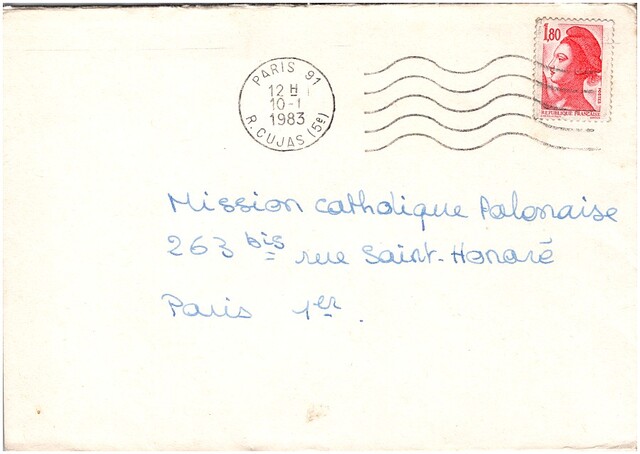 1,80
POSTES
REPUBLIQUE FRANÇAISE
PARIS 91
12 H
10-1
1983
R. CUJAS (5e)
Mission Catholique Polonaise
263 bis rue Saint-Honoré
Paris 1er.